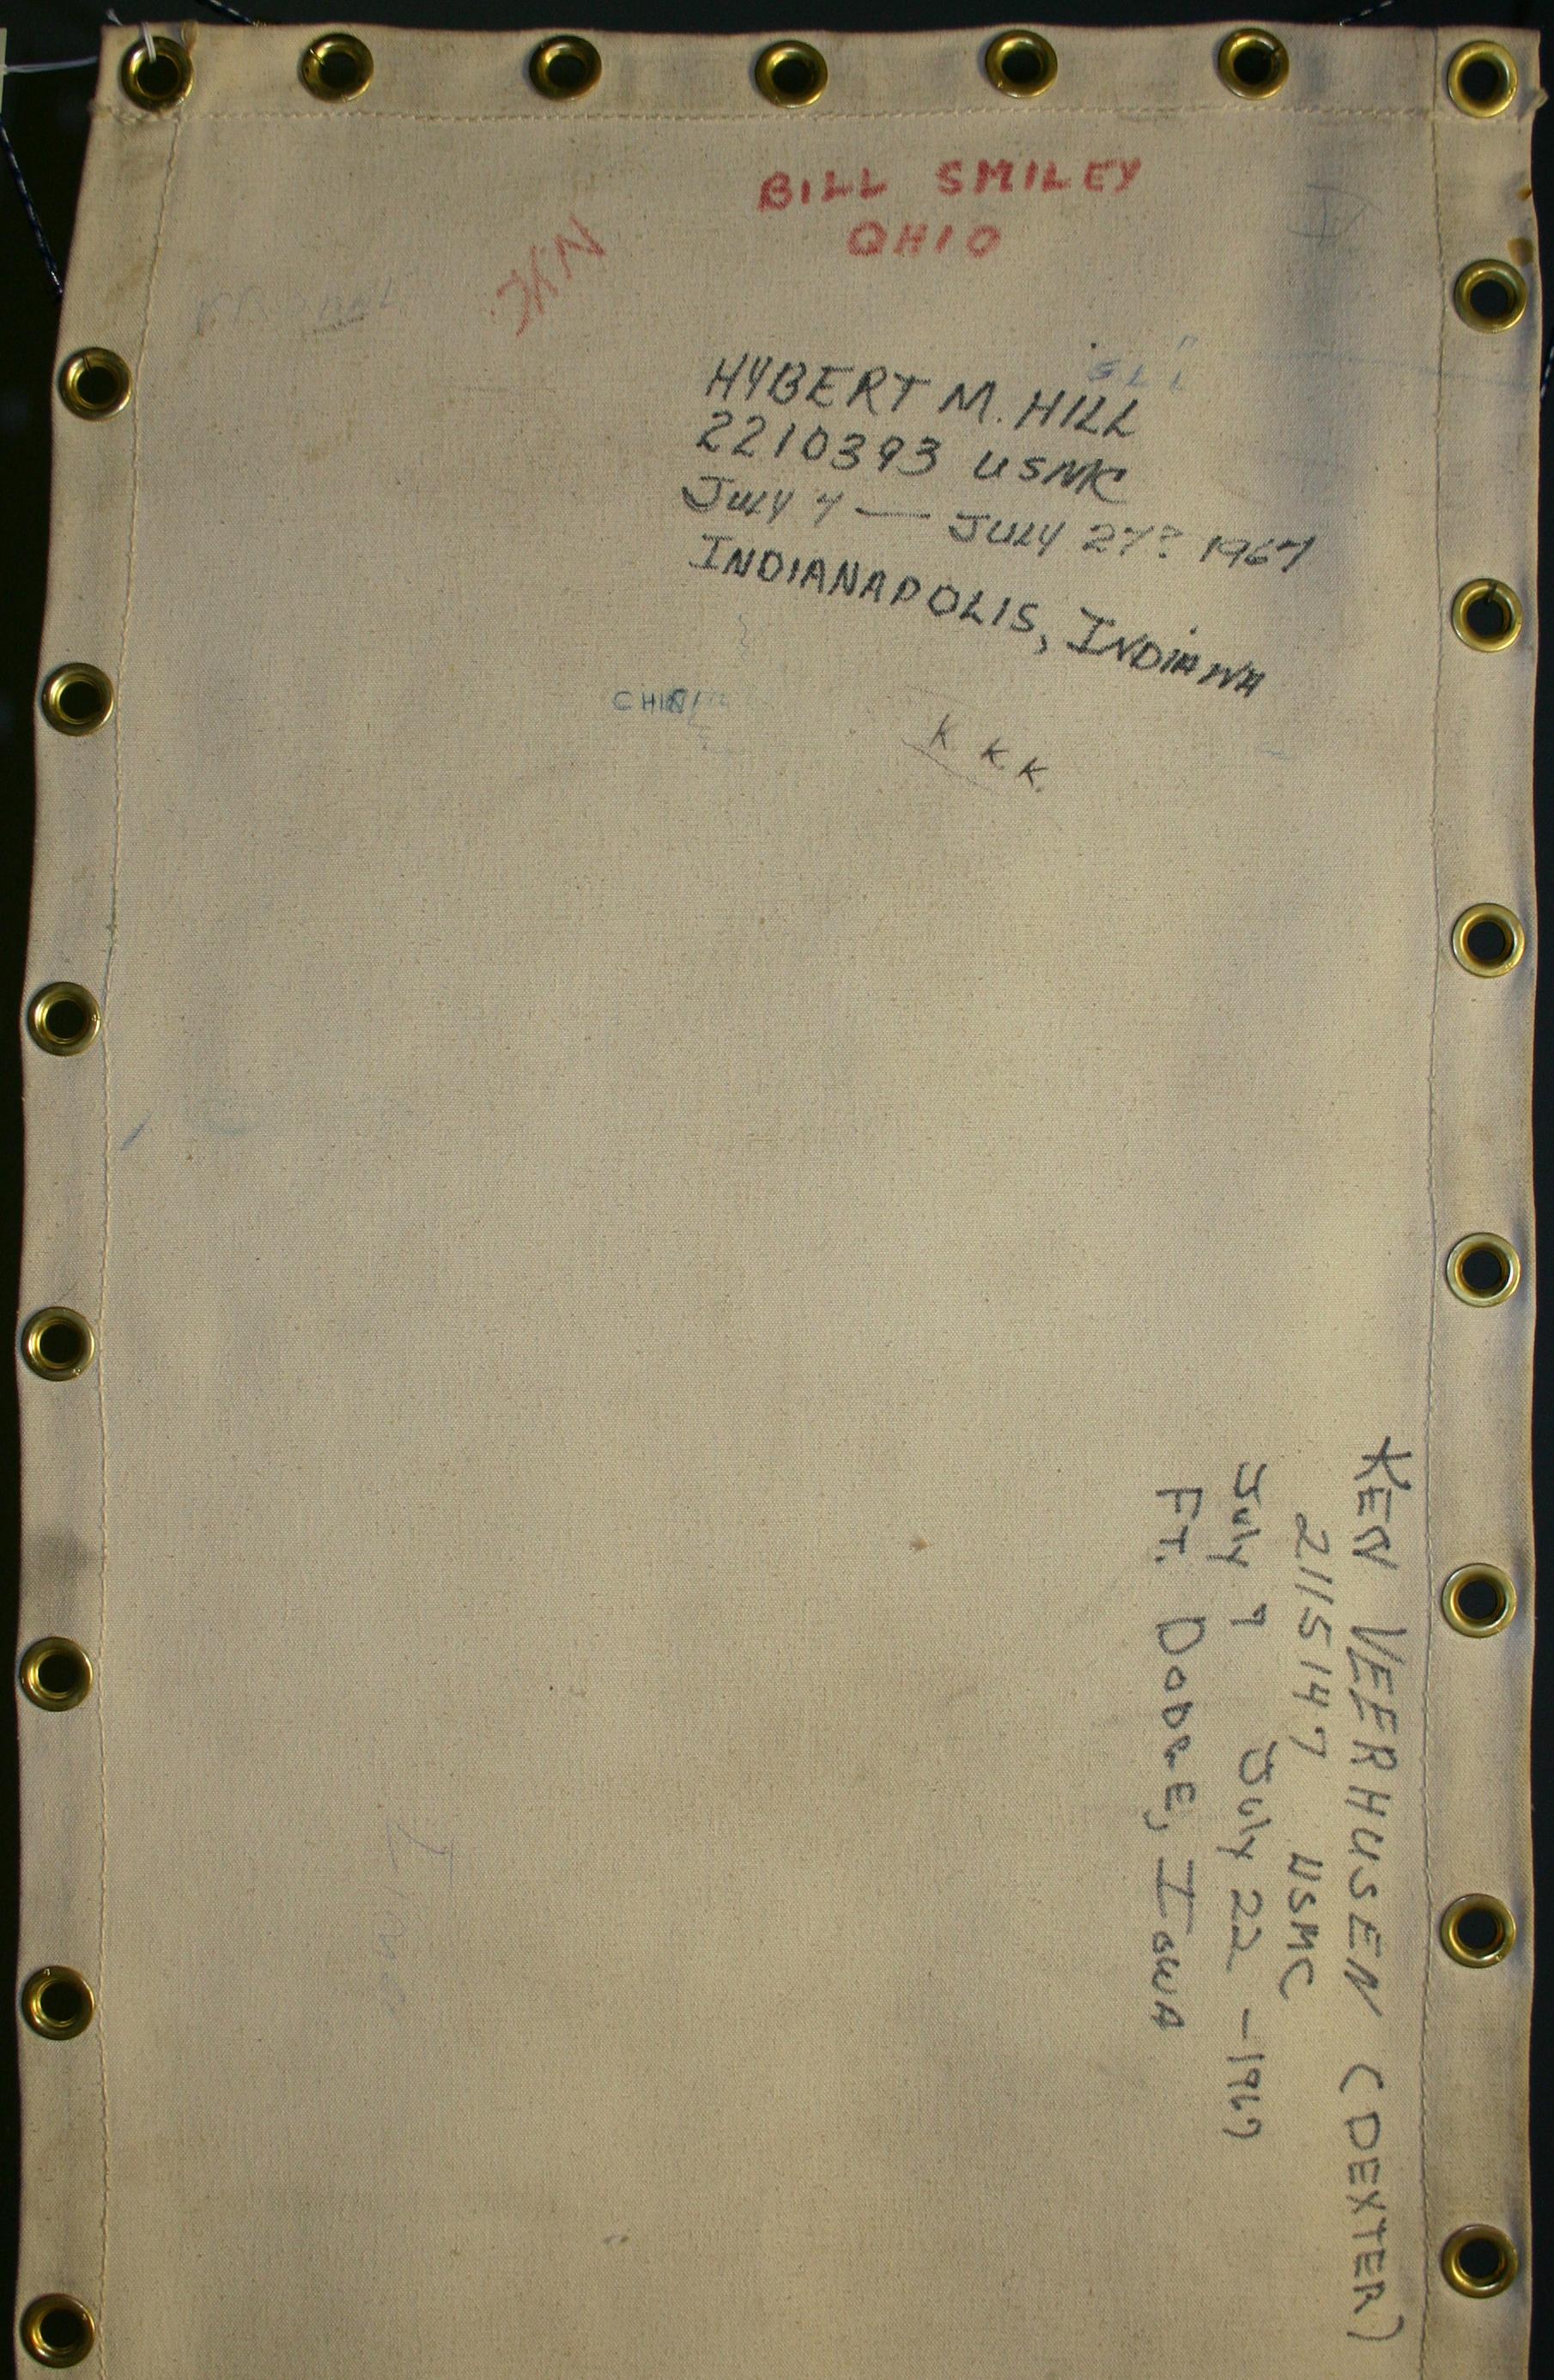 BILL SMILEY
OHIO
HYBERT M. HILL
2210393 USMC
JULY 7 — JULY 27? 1967
INDIANAPOLIS, INDIANA
K. K. K.
KEN VEERHUSEN (DEXTER)
2115147 USMC
July 7 July 22 - 1967
FT. DODGE, IOWA